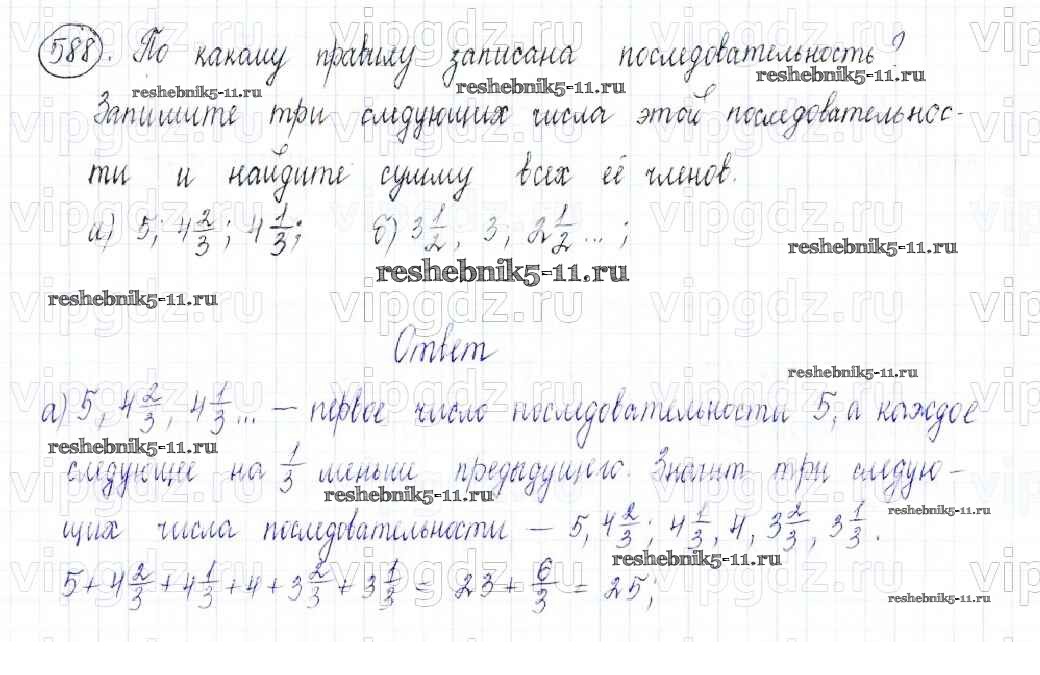 588. По какому правилу записана последовательность?
vipgdz.ru vipgdz.ru vipgdz.ru vipgdz.ru
reshebnik5-11.ru reshebnik5-11.ru reshebnik5-11.ru
Запишите три следующих числа этой последовательнос-
ти и найдите сумму всех её членов.
а) 5; 4 2/3; 4 1/3; б) 3 1/2, 3, 2 1/2 ... ;
reshebnik5-11.ru
reshebnik5-11.ru
reshebnik5-11.ru
vipgdz.ru vipgdz.ru vipgdz.ru vipgdz.ru
Ответ
reshebnik5-11.ru
а) 5, 4 2/3, 4 1/3 ... — первое число последовательности 5, а каждое
reshebnik5-11.ru
следующее на 1/3 меньше предыдущего. Значит три следую-
reshebnik5-11.ru
reshebnik5-11.ru
щих числа последовательности — 5, 4 2/3; 4 1/3, 4, 3 2/3, 3 1/3.
reshebnik5-11.ru
5 + 4 2/3 + 4 1/3 + 4 + 3 2/3 + 3 1/3 = 23 + 6/3 = 25;
reshebnik5-11.ru